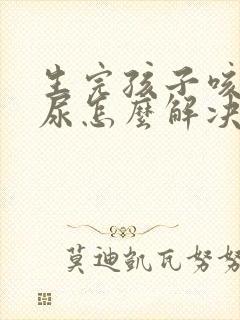 生完孩子咳
尿怎麼解决
莫迪凱瓦努努